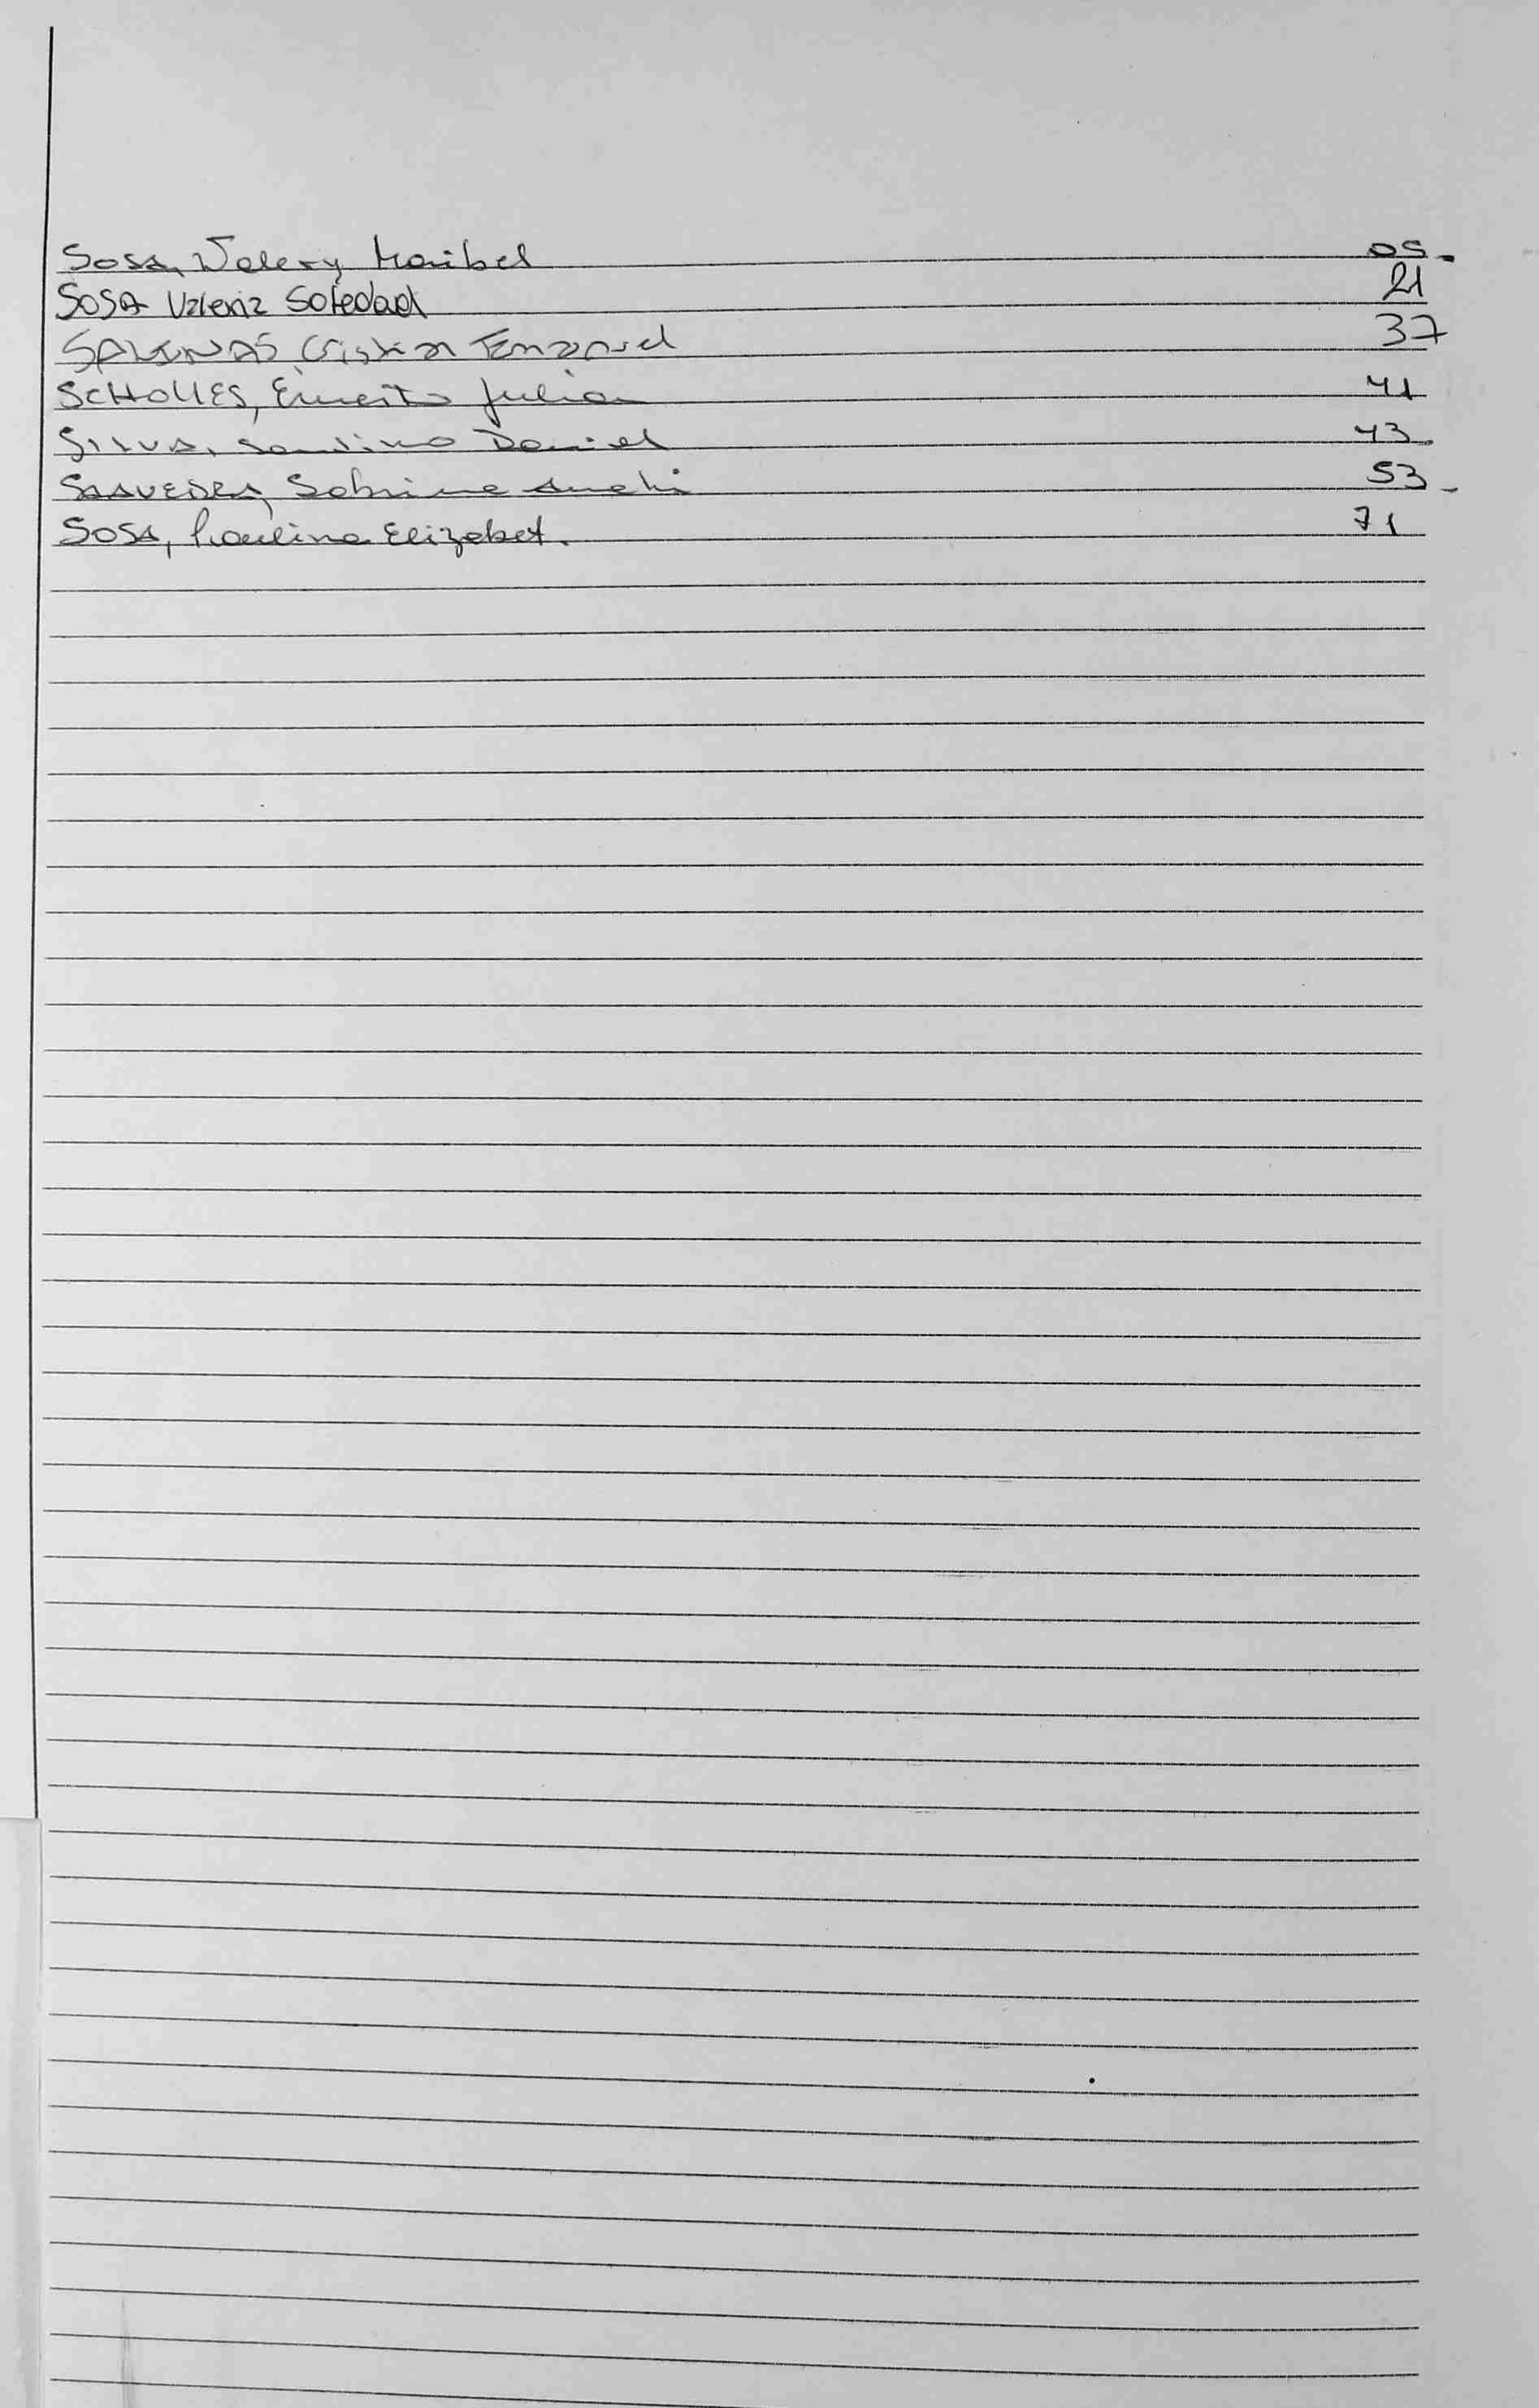 Sosa, Walery Maribel 05.
SOSA Valeria Soledad 21
SALINAS Cristian Emanuel 37
SCHOLLES, Ernesto Julian 41
SILVA, Santino Daniel 43.
SAAVEDRA, Sabrina Anahi 53-
SOSA, Paulina Elizabet. 71